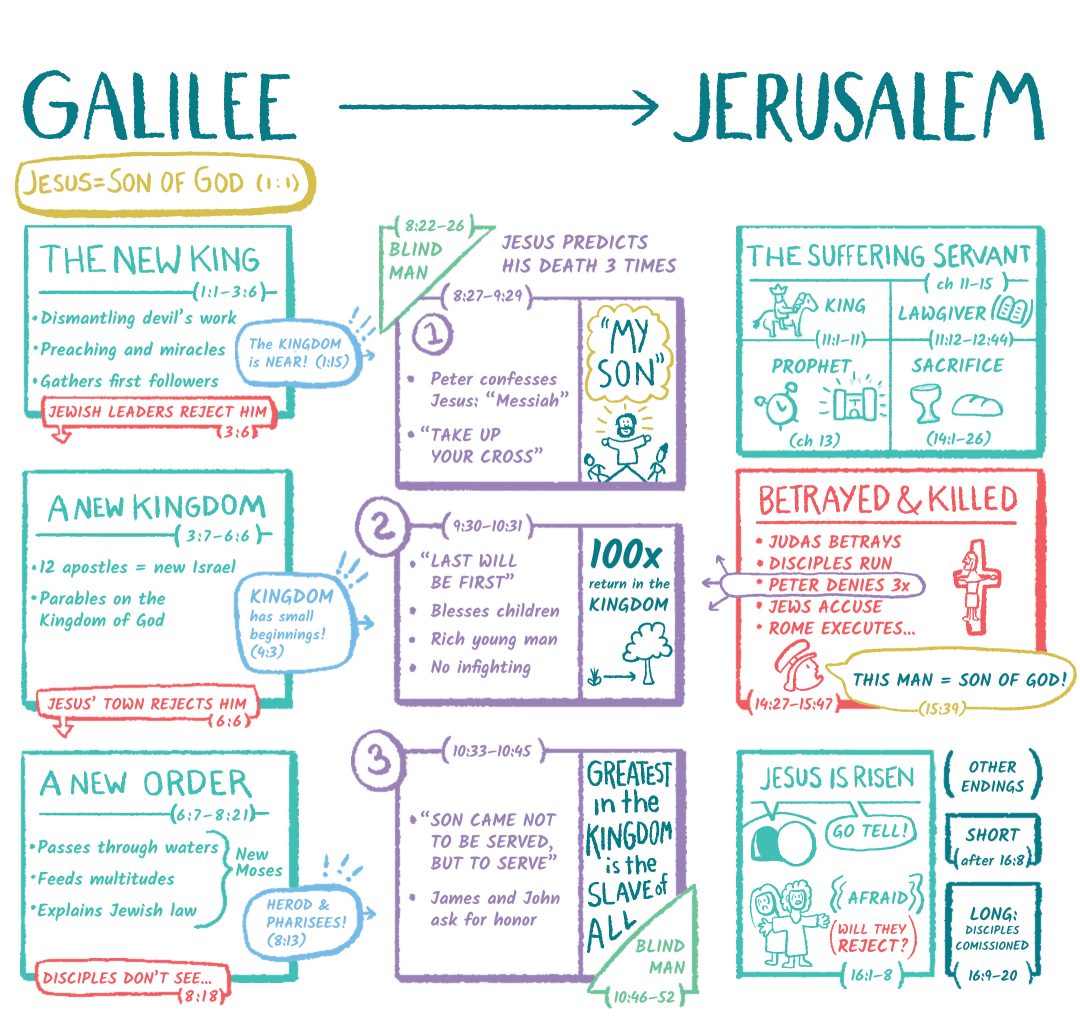 GALILEE
JERUSALEM
JESUS=SON OF GOD (1:1)
THE NEW KING
(1:1-3:6)
•Dismantling devil's work
•Preaching and miracles
•Gathers first followers
The KINGDOM
is NEAR! (1:15)
JEWISH LEADERS REJECT HIM
(3:6)
A NEW KINGDOM
(3:7-6:6)
•12 apostles = new Israel
•Parables on the
Kingdom of God
KINGDOM
has small
beginnings!
(4:3)
JESUS' TOWN REJECTS HIM
(6:6)
A NEW ORDER
(6:7-8:21)
•Passes through waters
•Feeds multitudes
•Explains Jewish law
New
Moses
HEROD &
PHARISEES!
(8:13)
DISCIPLES DON'T SEE...
(8:18)
(8:22-26)
BLIND
MAN
JESUS PREDICTS
HIS DEATH 3 TIMES
(8:27-9:29)
1
• Peter confesses
Jesus: "Messiah"
• "TAKE UP
YOUR CROSS"
"MY
SON"
2
(9:30-10:31)
• "LAST WILL
BE FIRST"
• Blesses children
• Rich young man
• No infighting
100x
return in the
KINGDOM
3
(10:33-10:45)
• "SON CAME NOT
TO BE SERVED,
BUT TO SERVE"
• James and John
ask for honor
GREATEST
in the
KINGDOM
is the
SLAVE of
ALL
BLIND
MAN
(10:46-52)
THE SUFFERING SERVANT
(ch 11-15)
KING
(11:1-11)
LAWGIVER
(11:12-12:44)
PROPHET
(ch 13)
SACRIFICE
(14:1-26)
BETRAYED & KILLED
• JUDAS BETRAYS
• DISCIPLES RUN
• PETER DENIES 3x
• JEWS ACCUSE
• ROME EXECUTES...
THIS MAN = SON OF GOD!
(15:39)
(14:27-15:47)
JESUS IS RISEN
GO TELL!
(AFRAID)
(WILL THEY
REJECT?)
(16:1-8)
(OTHER
ENDINGS)
SHORT
(after 16:8)
LONG:
DISCIPLES
COMISSIONED
(16:9-20)